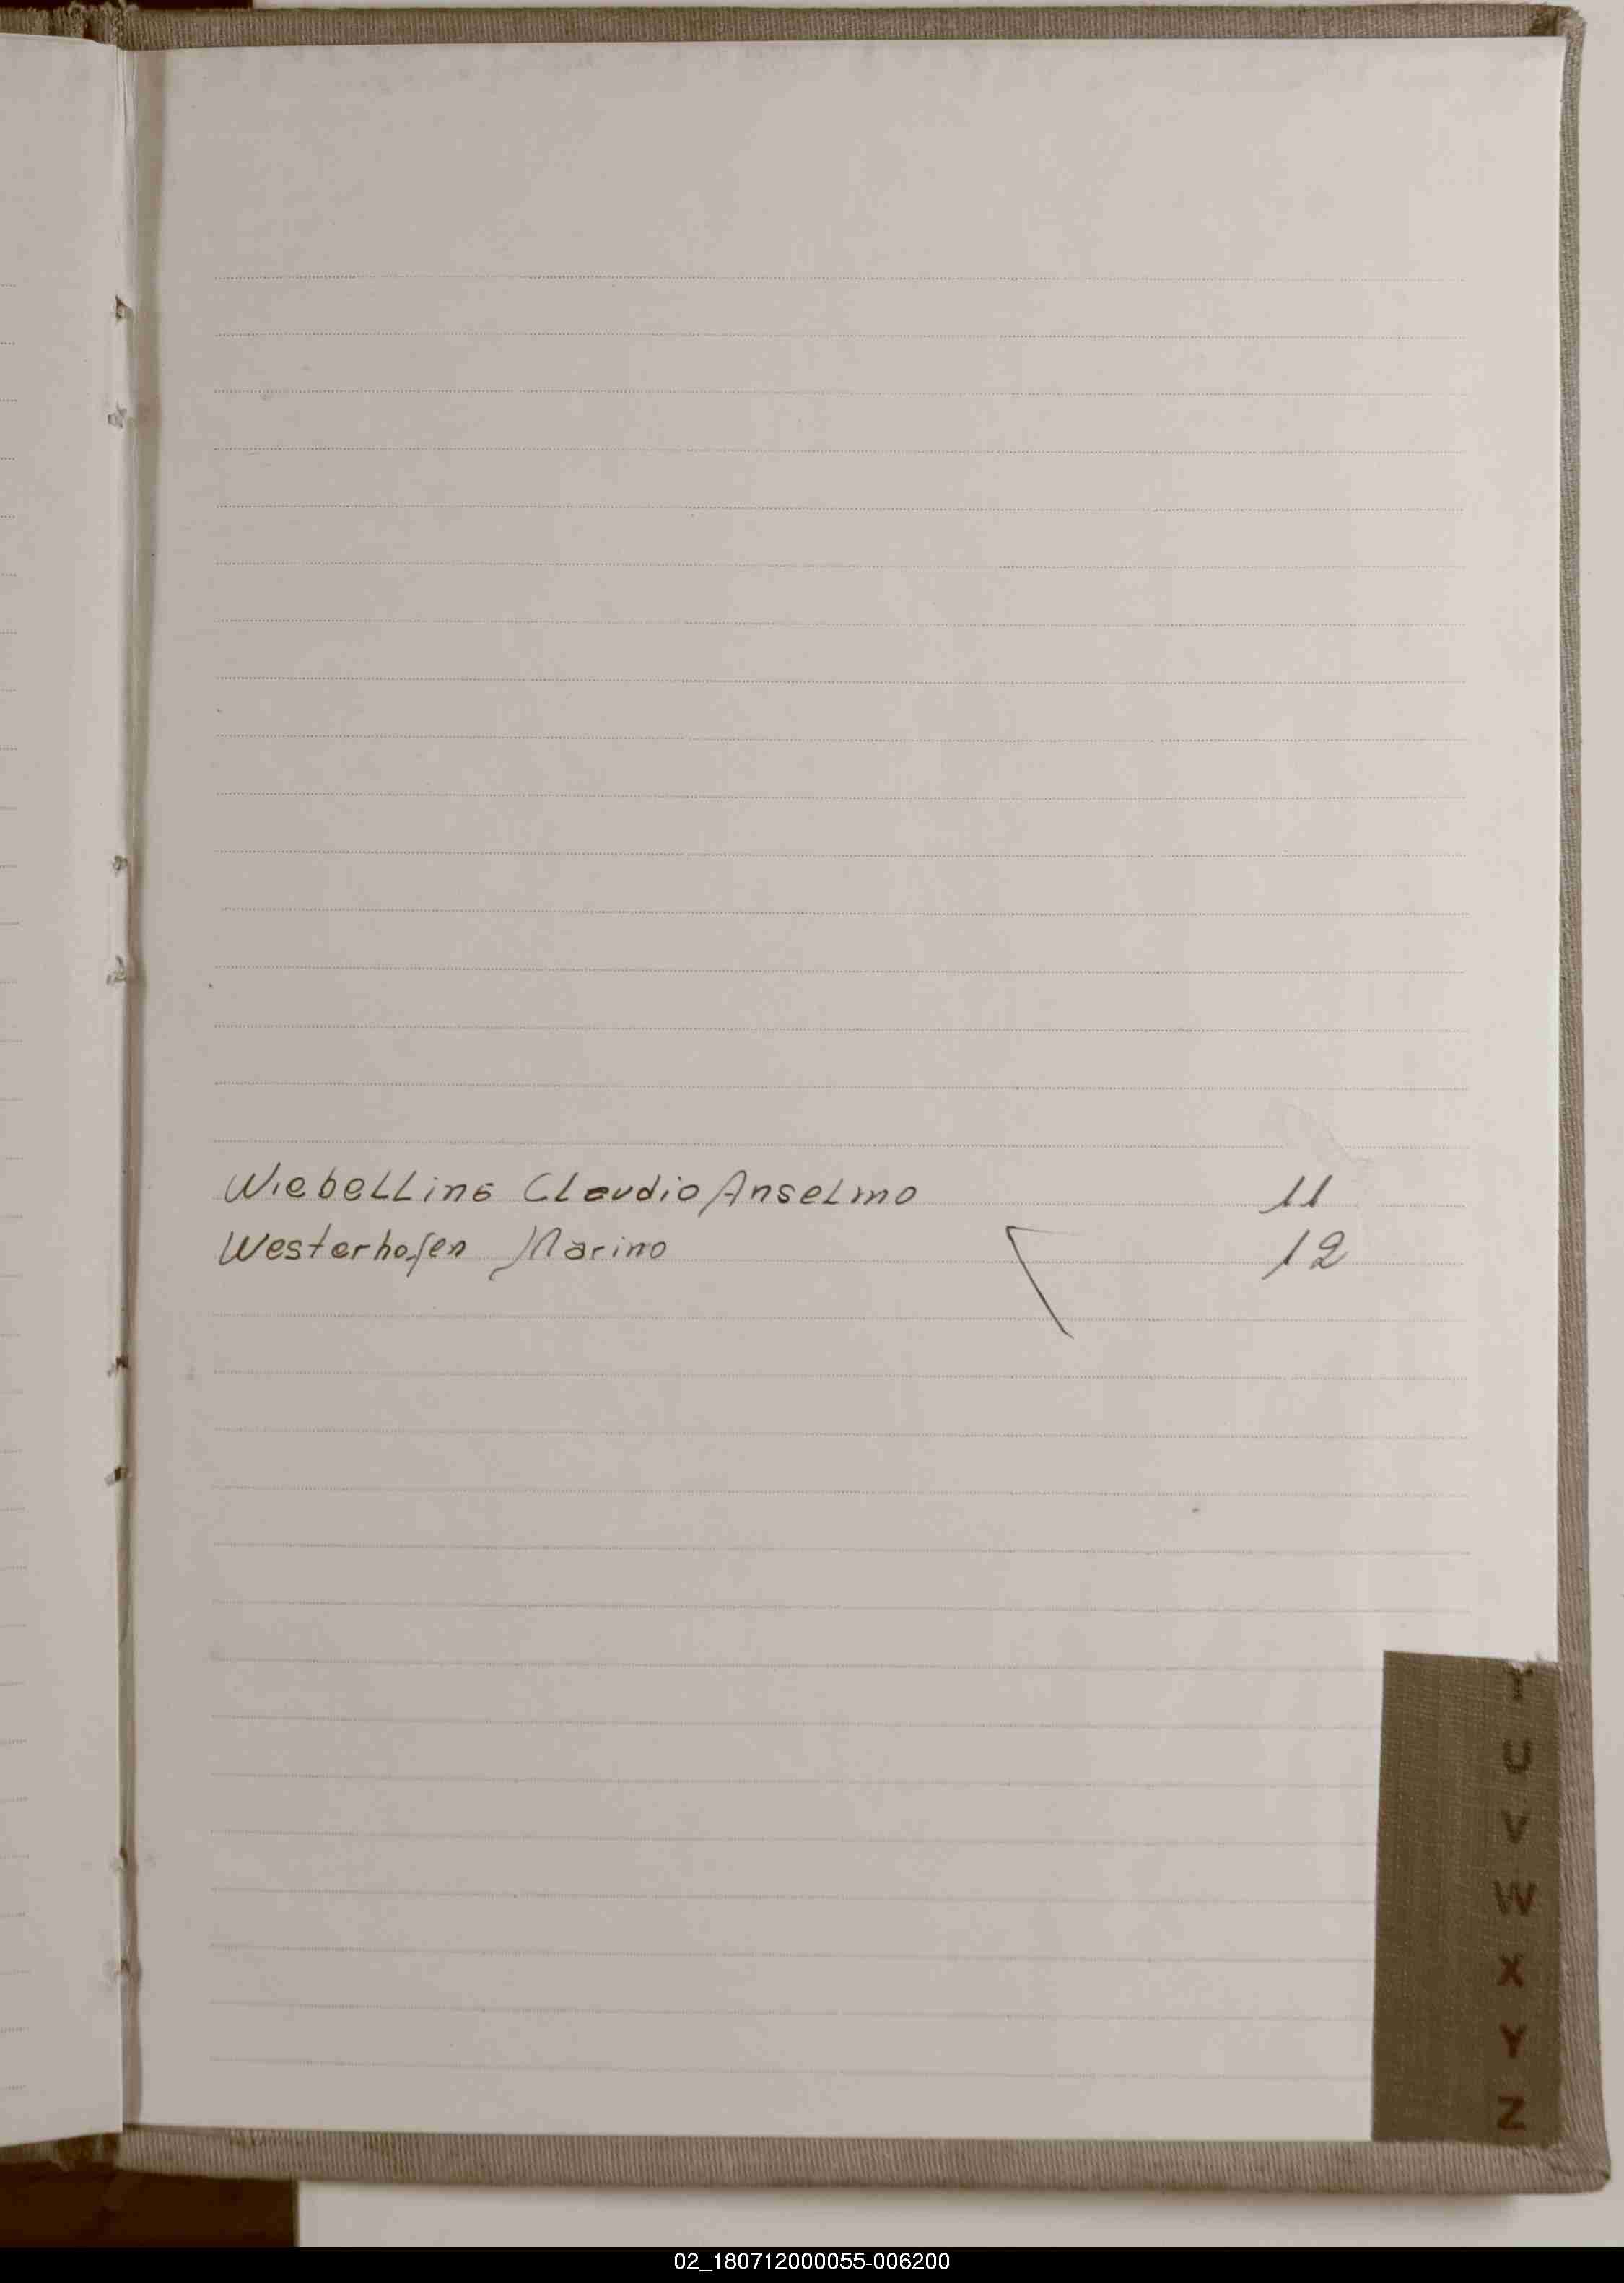 Wiebelling Claudio Anselmo 11
Westerhofen Marino 12
T
U
V
W
X
Y
Z
02_180712000055-006200